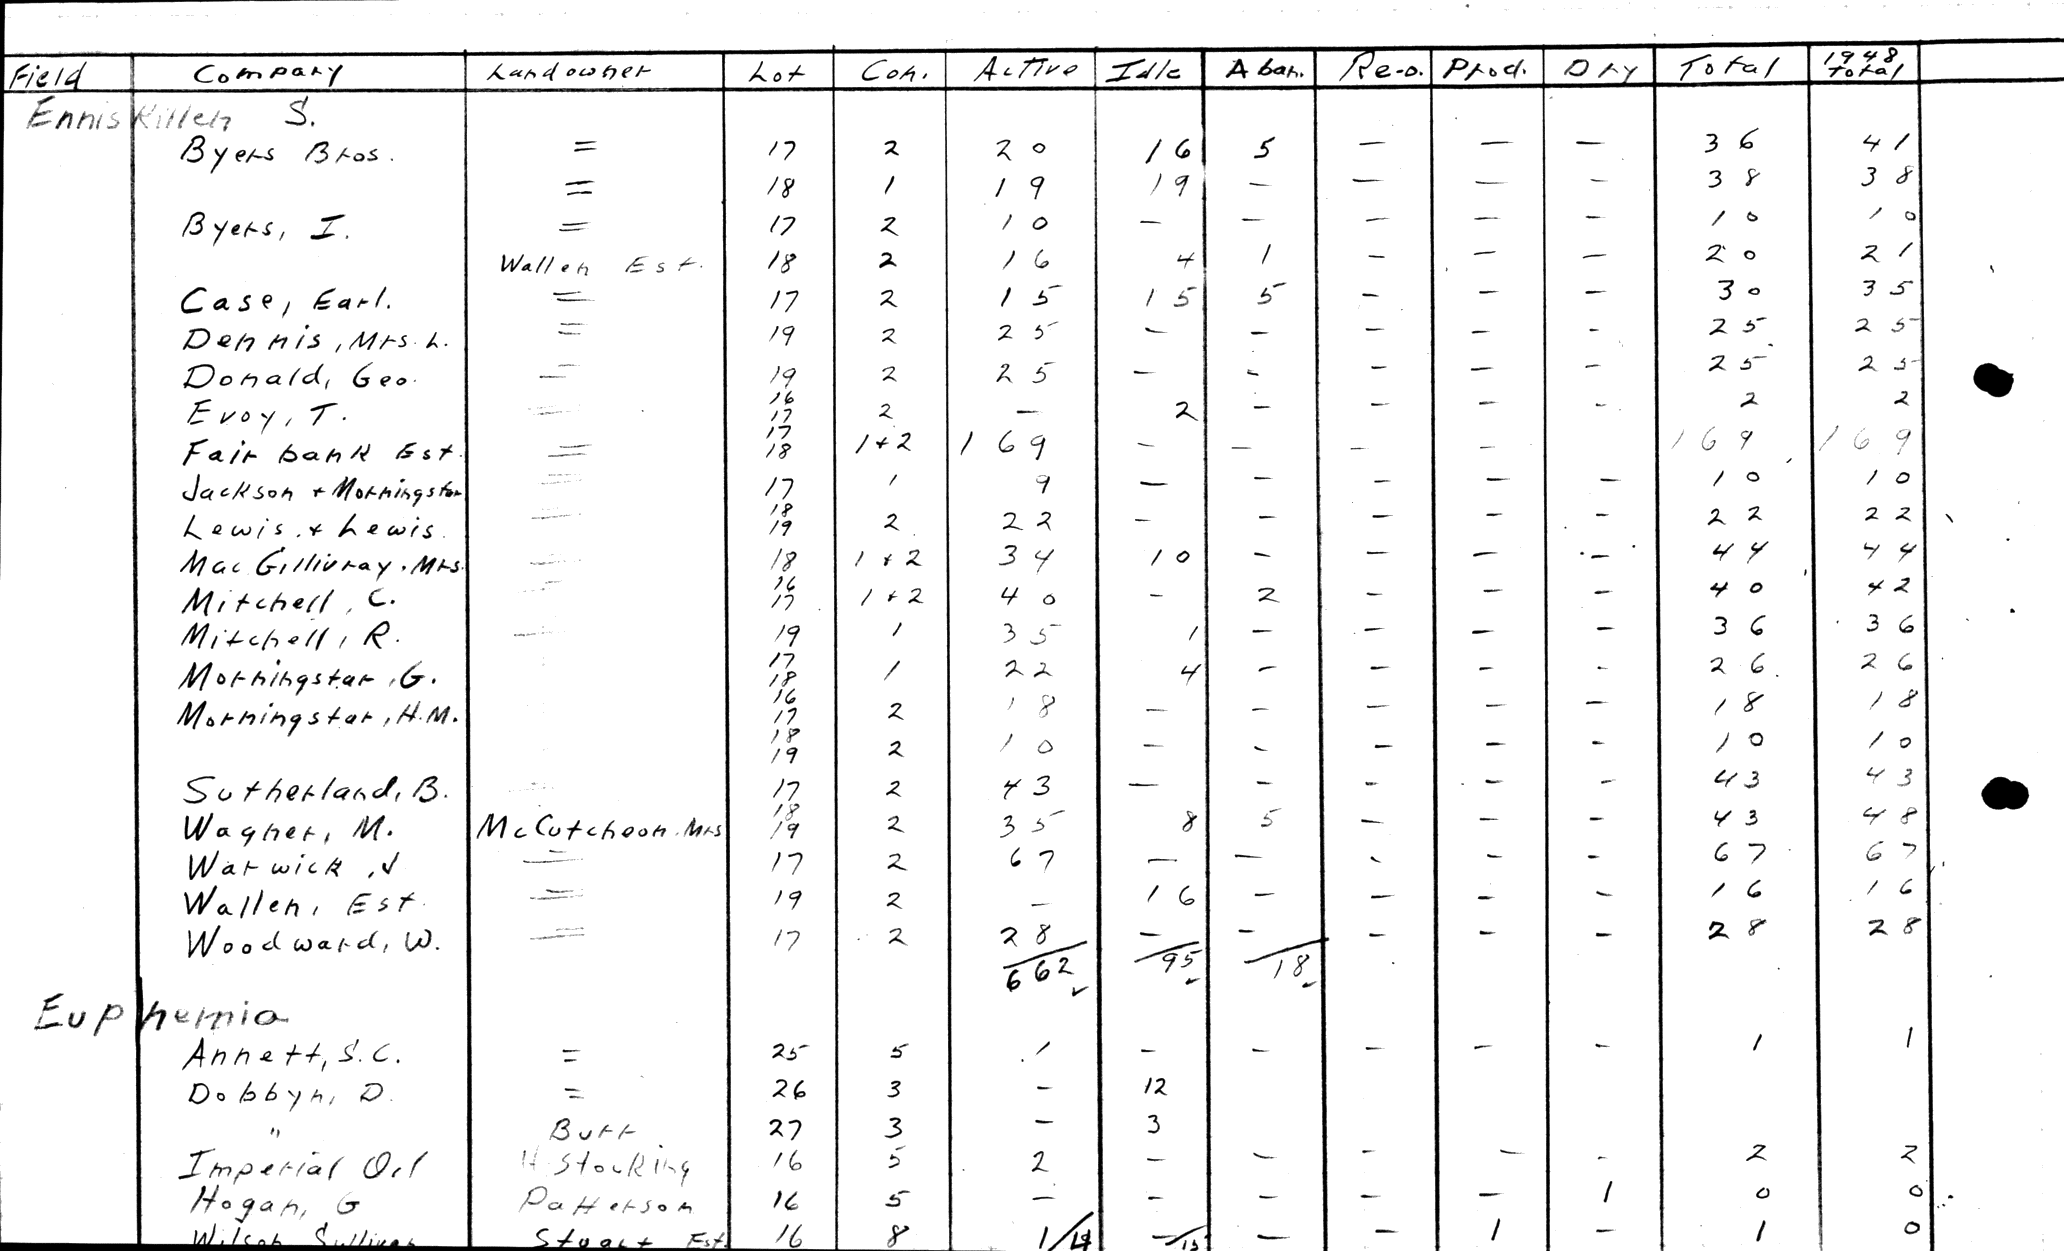 Field Company Landowner Lot Con. Active Idle Aban. Re-o. Prod. Dry Total 1948 Total
Enniskillen S.
Byers Bros. = 17 2 20 16 5 — — — 36 41
= 18 1 19 19 — — — — 38 38
Byers, I. = 17 2 10 — — — — — 10 10
Wallen Est. 18 2 16 4 1 — — — 20 21
Case, Earl. = 17 2 15 15 5 — — — 30 35
Dennis, Mrs. L. = 19 2 25 — — — — — 25 25
Donald, Geo. = 19 2 25 — — — — — 25 25
Evoy, T. = 16 17 2 — 2 — — — — 2 2
Fairbank Est. = 17 18 1+2 169 — — — — 169 169
Jackson + Morningstar = 17 1 9 — — — — — 10 10
Lewis + Lewis = 18 19 2 22 — — — — — 22 22
MacGillivray, Mrs. = 18 1+2 34 10 — — — — 44 44
Mitchell, C. = 16 17 1+2 40 — 2 — — — 40 42
Mitchell, R. = 19 1 35 1 — — — — 36 36
Morningstar, G. 17 18 1 22 4 — — — — 26 26
Morningstar, H.M. 16 17 2 18 — — — — — 18 18
18 19 2 10 — — — — — 10 10
Sutherland, B. = 17 2 43 — — — — — 43 43
Wagner, M. McCutcheon, Mrs 18 19 2 35 8 5 — — — 43 48
Warwick, J = 17 2 67 — — — — — 67 67
Wallen, Est. = 19 2 — 16 — — — — 16 16
Woodward, W. = 17 2 28 — — — — — 28 28
662 ✓ 95 ✓ 18 ✓
Euphemia
Annett, S.C. = 25 5 1 — — — — — 1 1
Dobbyn, D. = 26 3 — 12
" Burr 27 3 — 3
Imperial Oil H. Stocking 16 5 2 — — — — — 2 2
Hogan, G Patterson 16 5 — — — — — 1 0 0
Wilson Sullivan Stuart Est. 16 8 1/4 —/15 — — 1 — 1 0